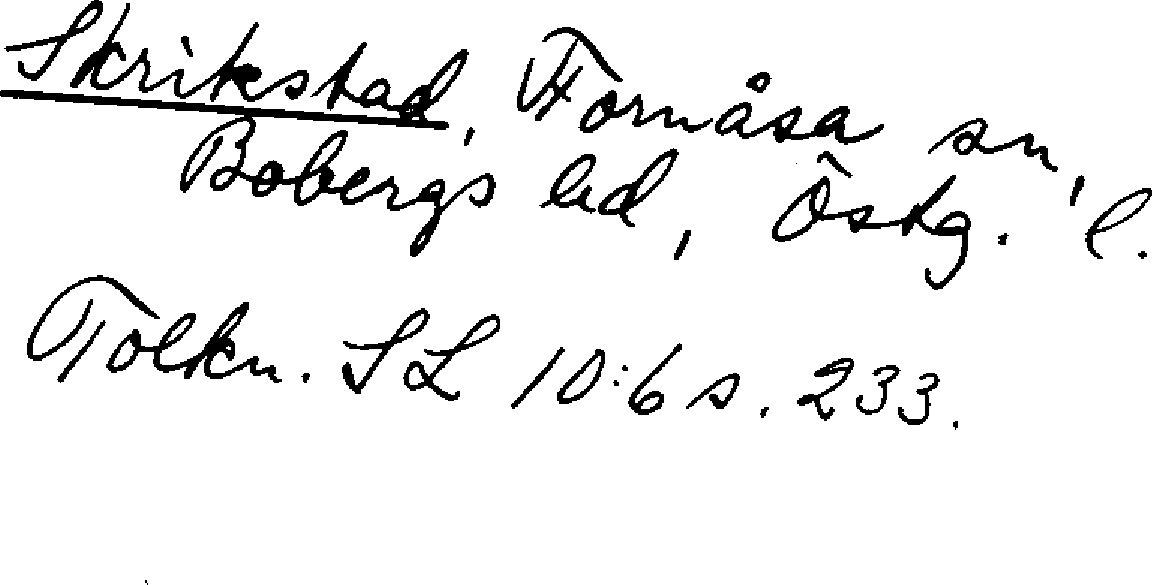 Skrikstad, Fornåsa sn,
Bobergs hd, Östg. l.
Tolkn. SL 10:6 s. 233.